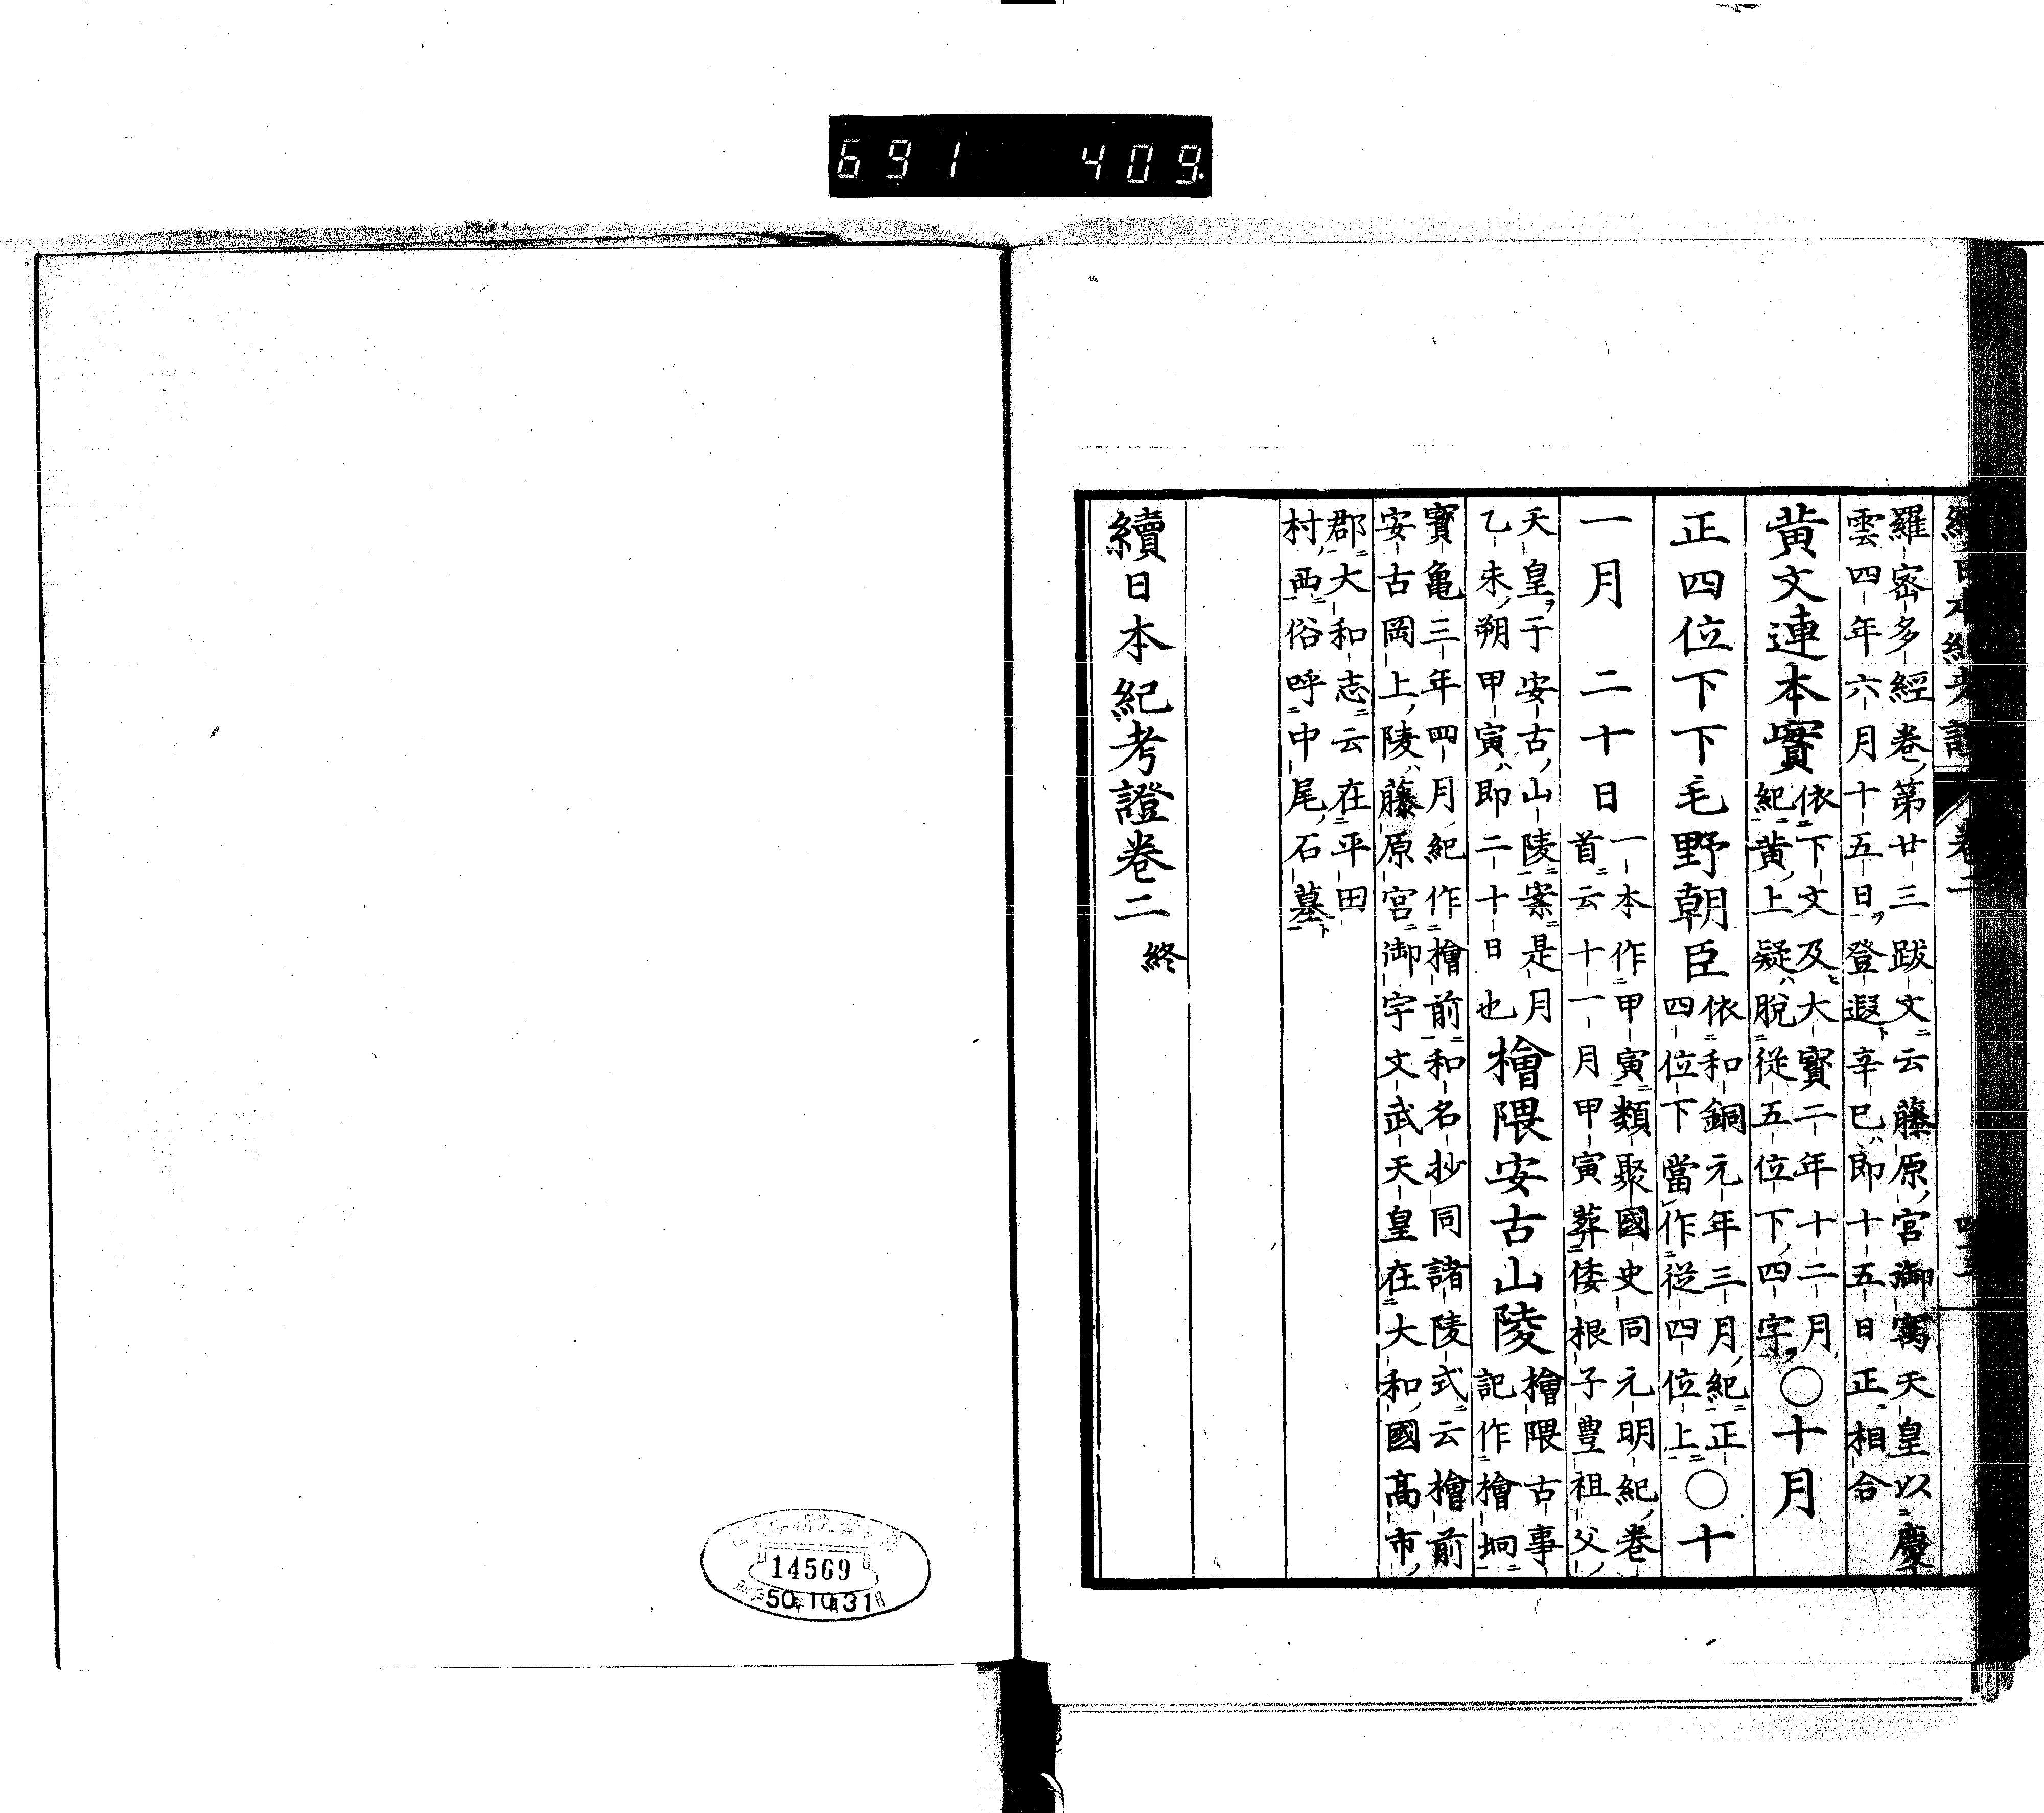 691 409.
羅密多經卷第廿三跋文云藤原宮御寓天皇以慶
雲四年六月十五日登遐辛巳即十五日正相合
黃文連本實
依下文及大寶二年十二月
紀黃上疑脫從五位下四字
〇十月
正四位下下毛野朝臣
依和銅元年三月紀正
四位下當作從四位上
〇十
一月 二十日
一本作甲寅類聚國史同元明紀卷
首云十一月甲寅葬倭根子豊祖父
天皇于安古山陵案是月
乙未朔甲寅即二十日也
檜隈安古山陵
檜隈古事
記作檜坰
寶亀三年四月紀作檜前和名抄同諸陵式云檜前
安古岡上陵藤原宮御宇文武天皇在大和國高市
郡大和志云在平田
村西俗呼中尾石墓
續日本紀考證卷二 終
14569
50 10 31